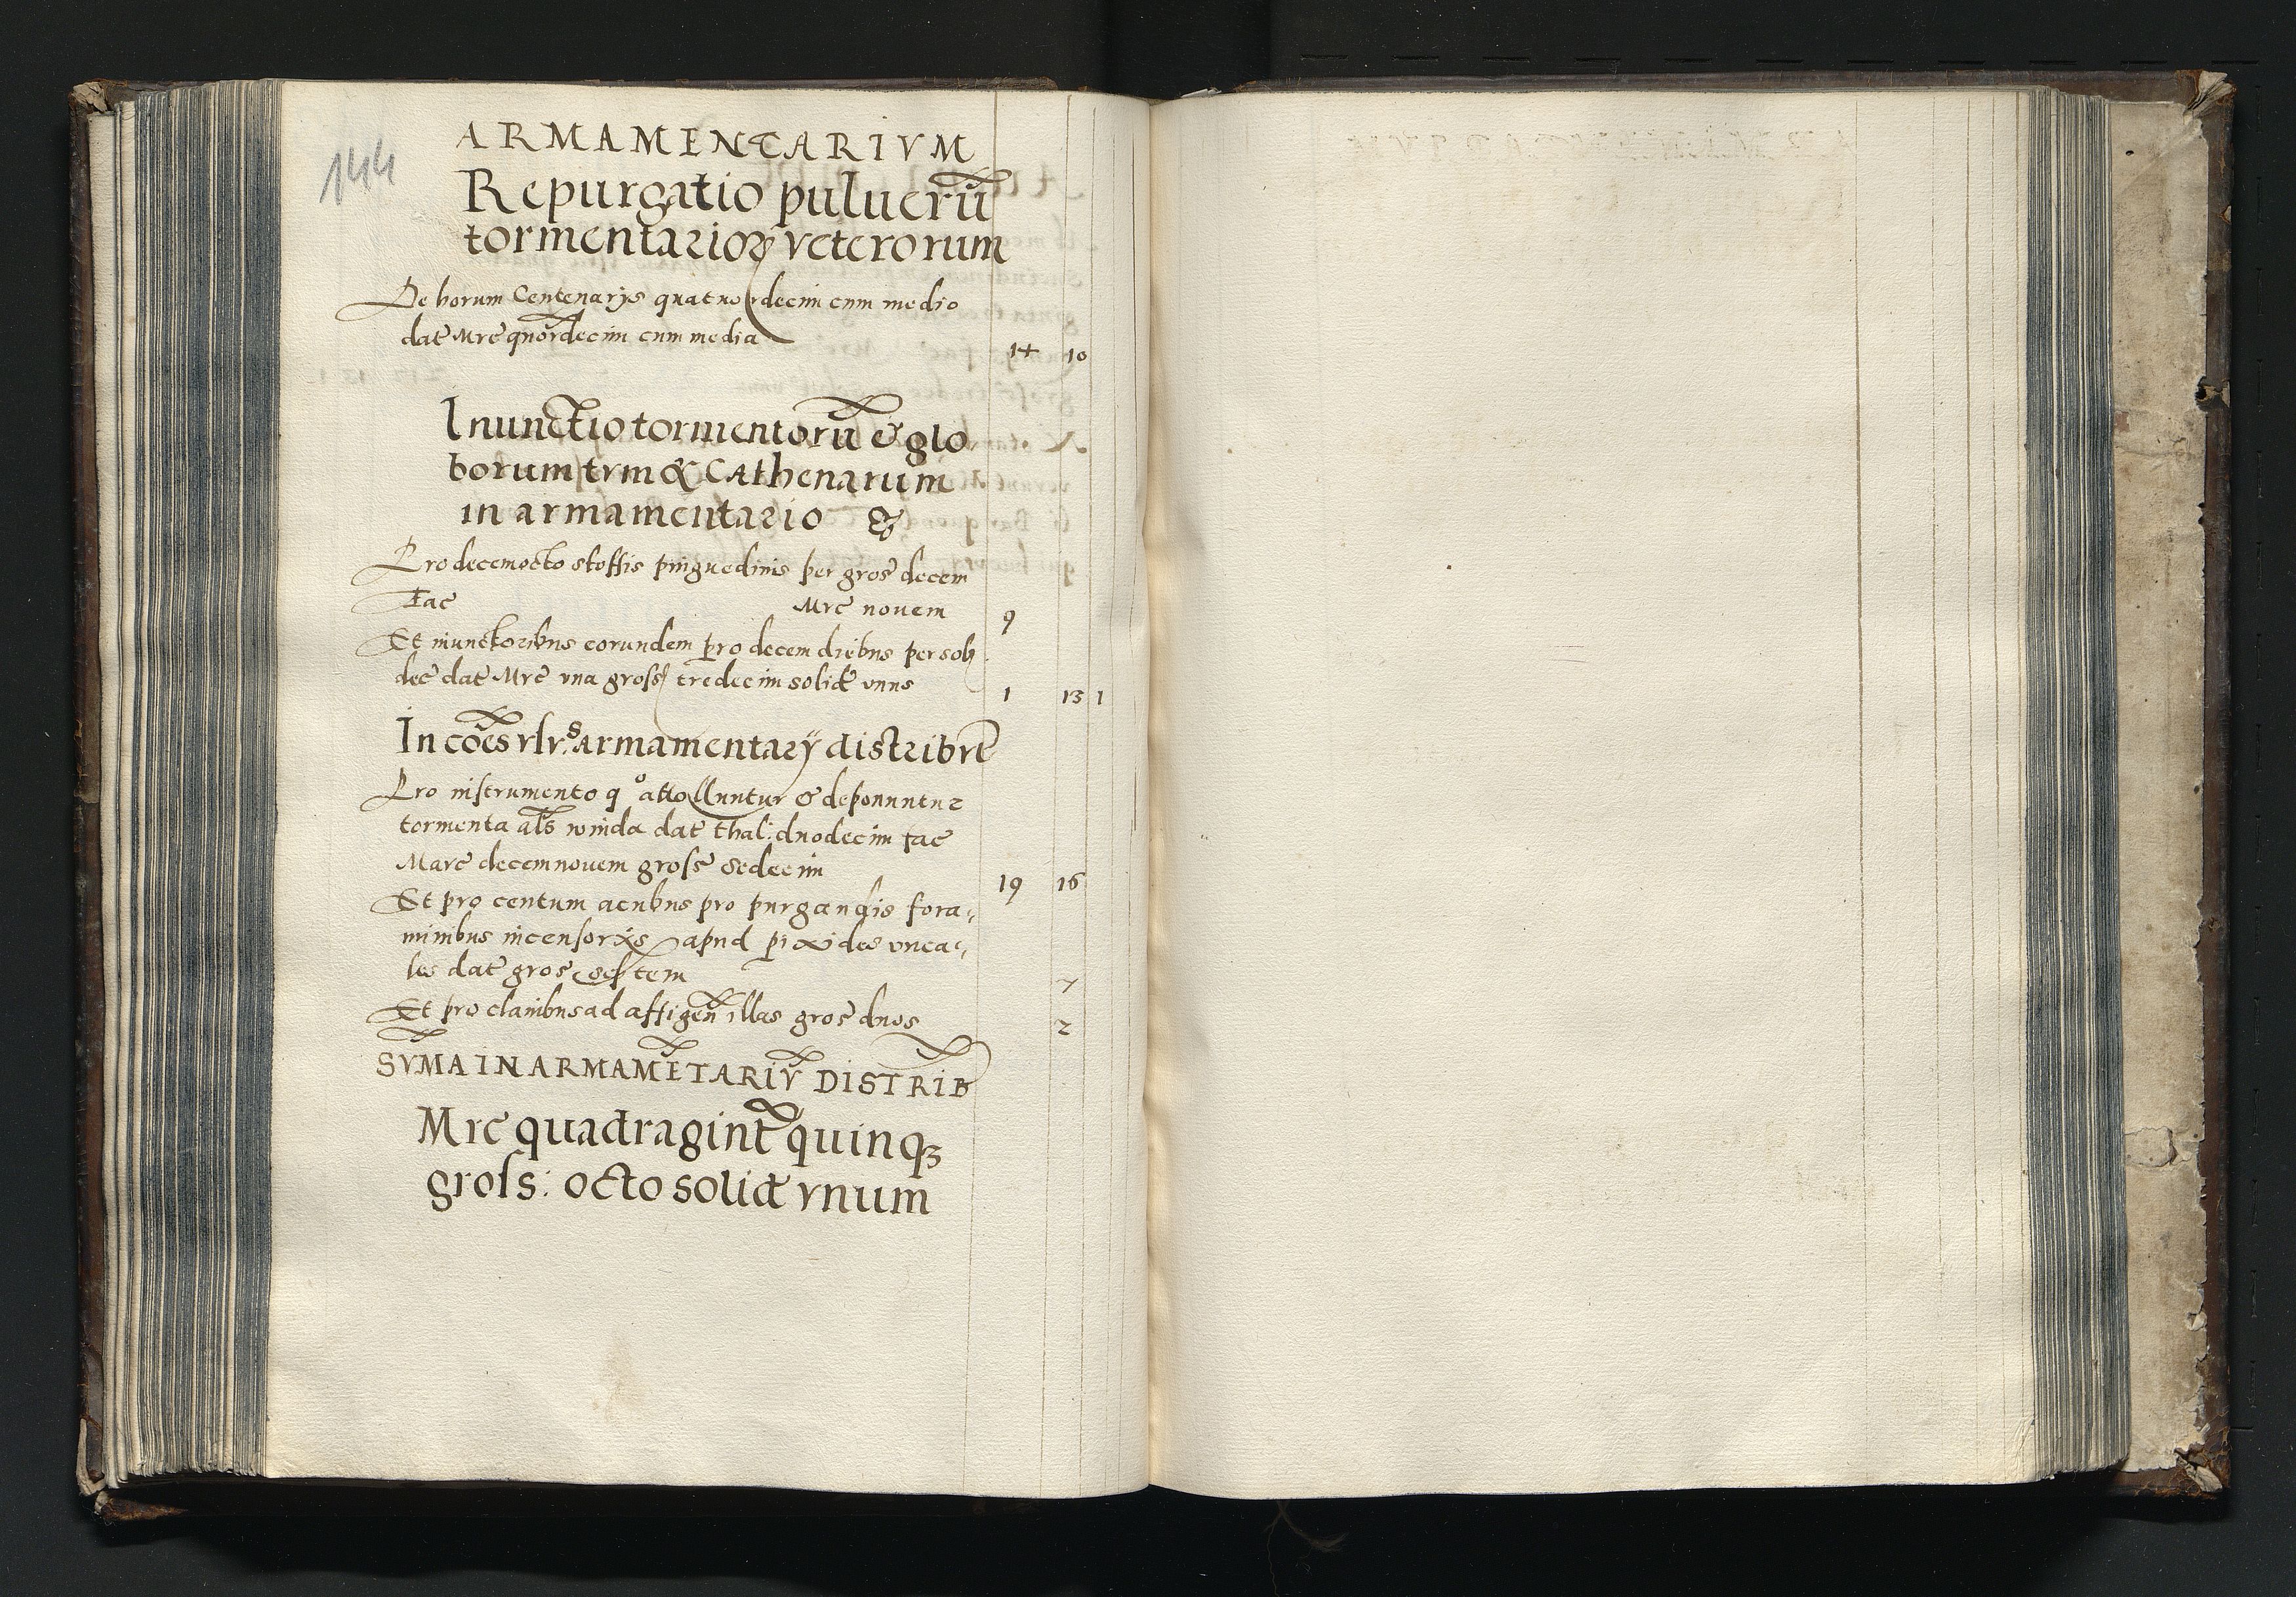 144
ARMAMENTARIVM
Repurgatio pulucrū
tormentarioꝝ veterorum
De horum Centenarijs quatuordecim cum medio
dat Mrc quordecim cum media 14 10
Inunctio tormentorū & glo
borum tvm & Cathenarum
in armamentario &
Pro decemocto stoffis pinguedinis per gros decem
fac Mrc novem 9
Et inunctoribus eorundem pro decem diebus per soli
dec dat Mrc vna gross tredecim solid vnus 1 13 1
In cōēs vsvs armamentarÿ distribvt
Pro instrumento qº attolluntur & deponuntur
tormenta als winda dat thal: duodecim fac
Marc decemnouem gross sedecim 19 16
Et pro centum acubus pro purgandis fora-
minibus incensorijs apud pixides vnca-
les dat gros septem 7
Et pro clauibus ad affigen illas gros duos 2
SVMA IN ARMAMĒTARIV̄ DISTRIB
Mrc quadragint quinqꝫ
gross: octo solid vnum